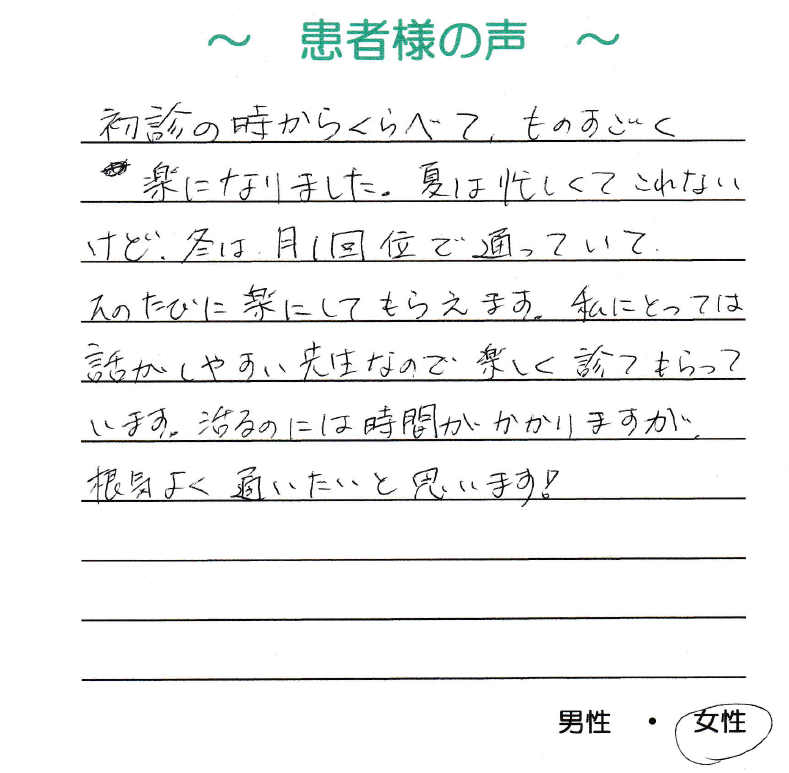 ～ 患者様の声 ～
初診の時からくらべて、ものすごく
楽になりました。夏は忙しくてこれない
けど、冬は月1回位で通っていて、
そのたびに楽にしてもらえます。私にとっては
話がしやすい先生なので楽しく診てもらって
います。治るのには時間がかかりますが、
根気よく通いたいと思います!
男性 ・ 女性